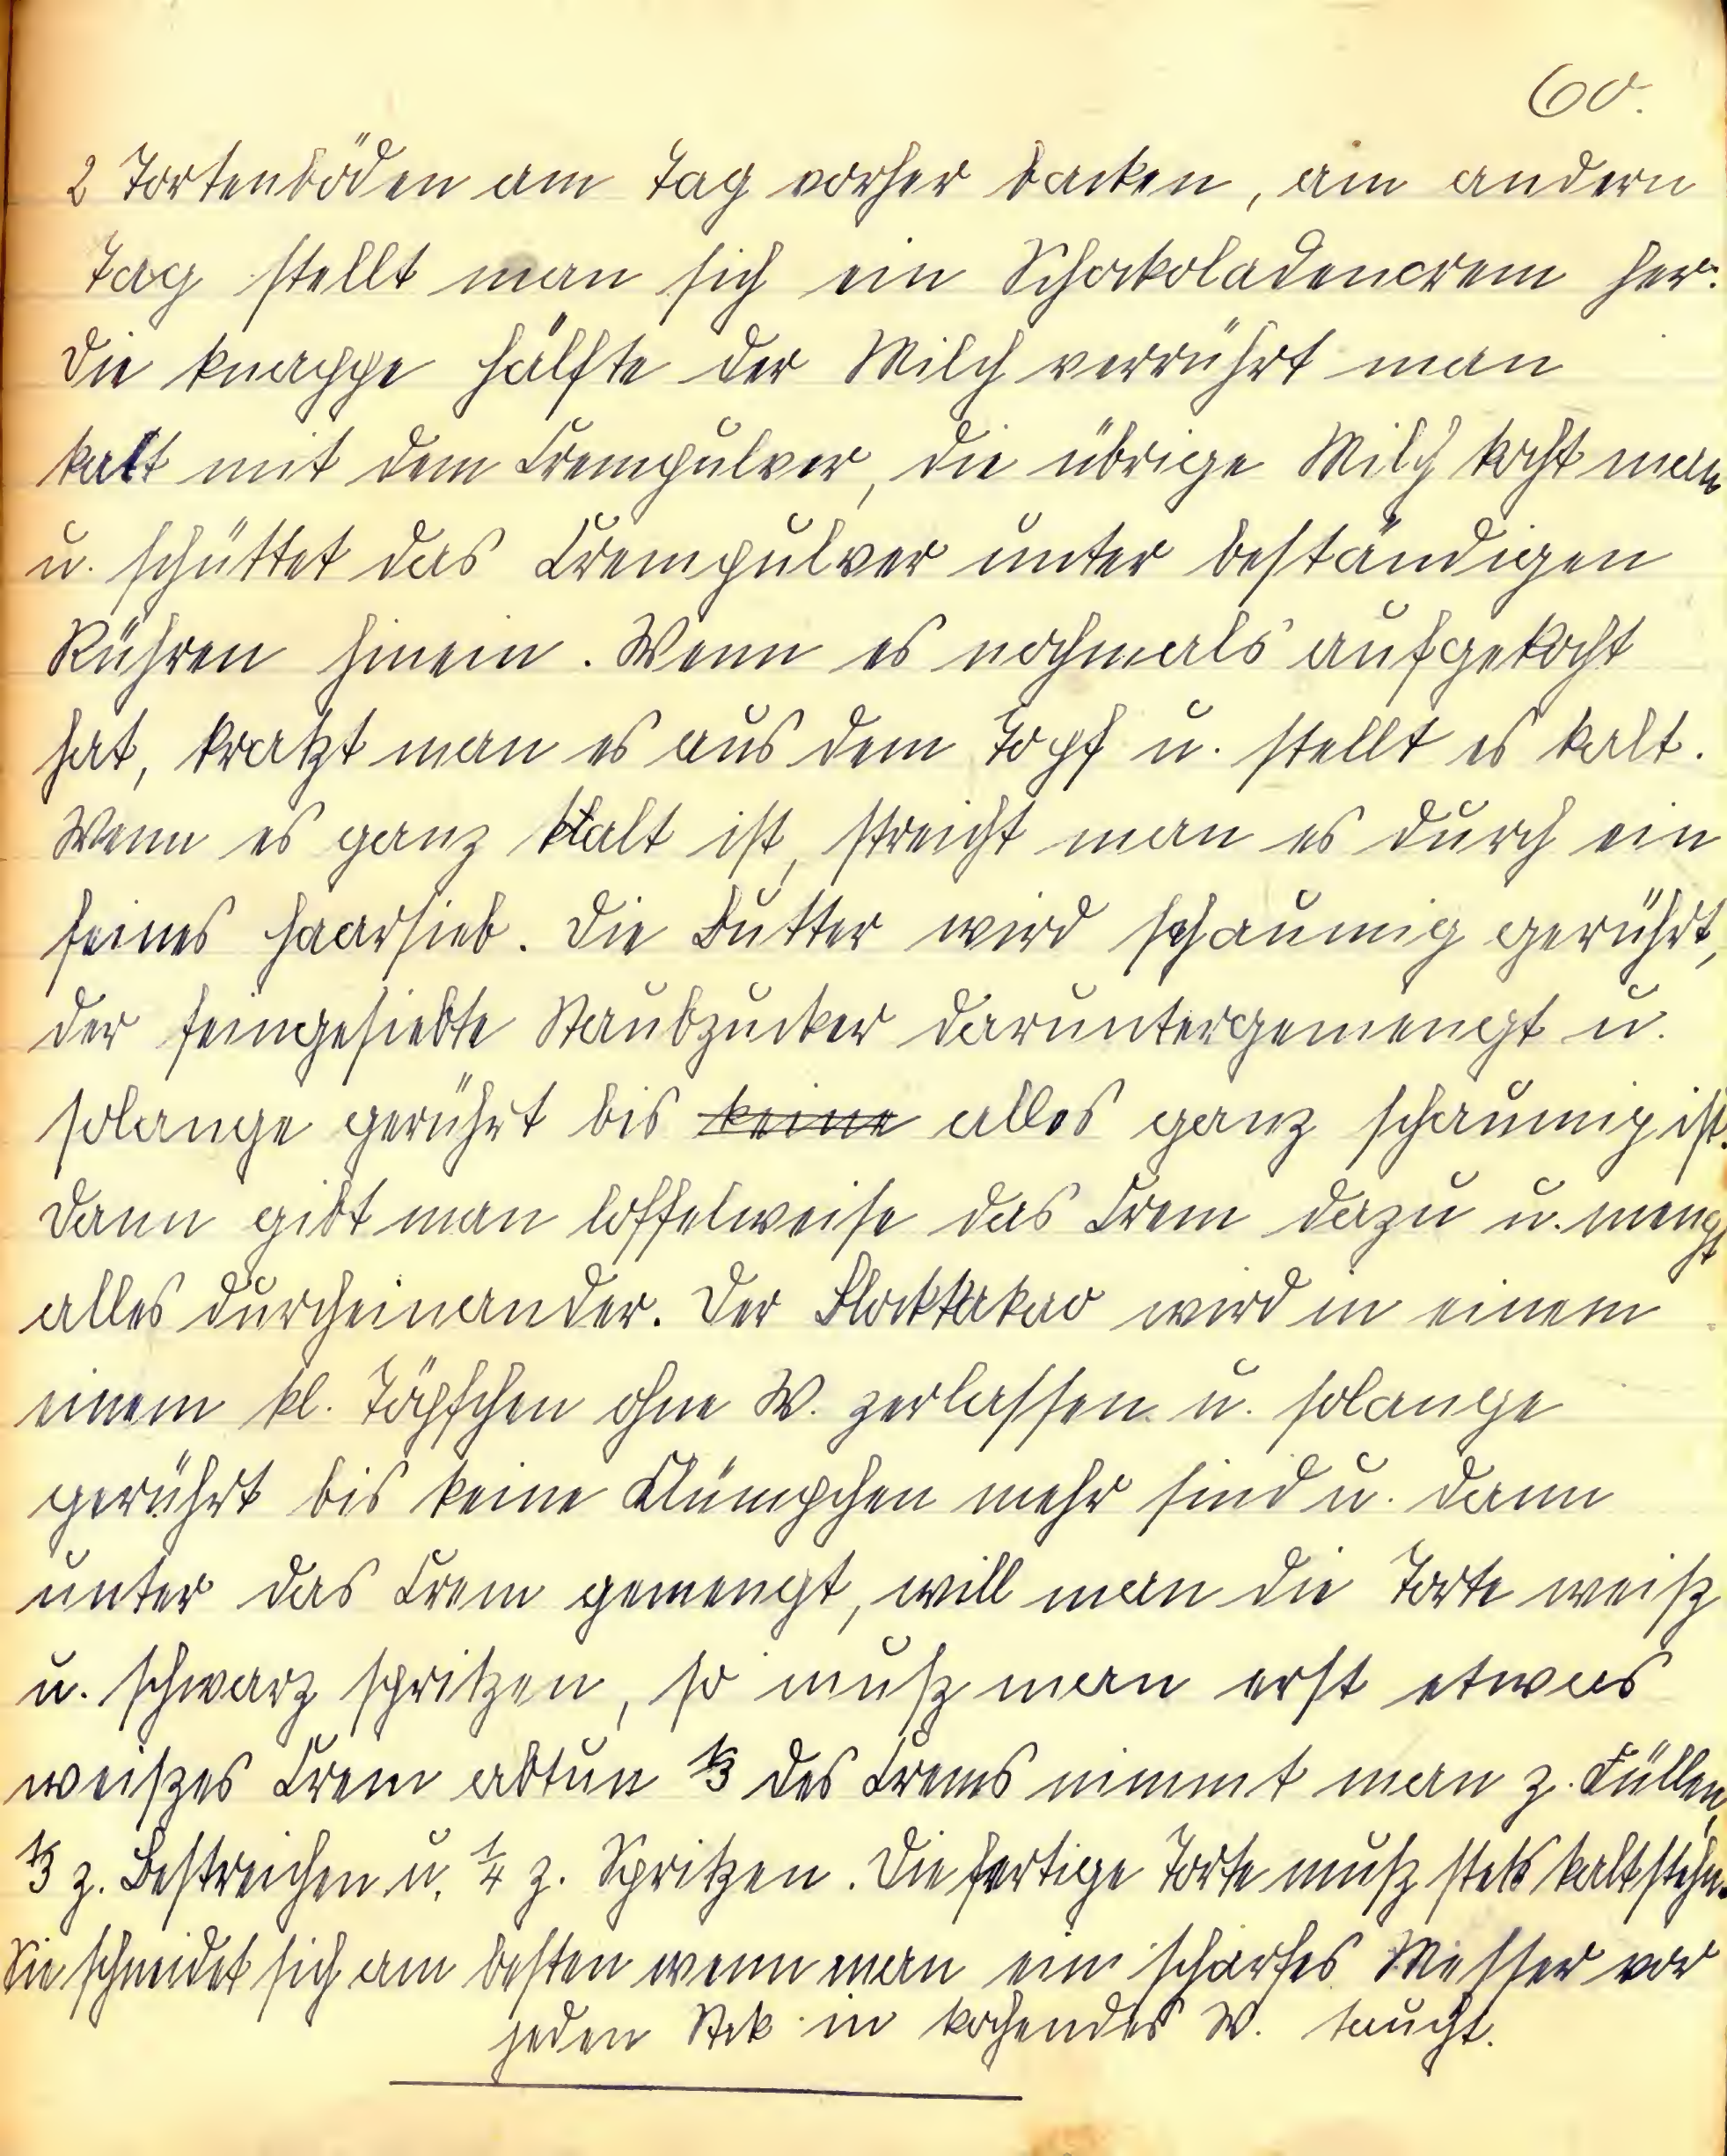 60.
2 Tortenböden am Tag vorher backen, am andern
Tag stellt man sich ein Schockoladencrem her.
Die knappe Hälfte der Milch verrührt man
kalt mit dem Crempulver, die übrige Milch kocht man
u. schüttet das Crempulver unter beständigen
Rühren hinein. Wenn es nochmals aufgekocht
hat, kratzt man es aus dem Topf u. stellt es kalt.
Wenn es ganz kalt ist, streicht man es durch ein
feines Haarsieb. Die Butter wird schaumig gerührt,
der feingesiebte Staubzucker daruntergemengt u.
solange gerührt bis keine alles ganz schaumig ist.
Dann gibt man löffelweise das Crem dazu u. mengt
alles durcheinander. Der Blockkakao wird in einem
einem kl. Töpfchen ohne W. zerlassen u. solange
gerührt bis keine Klümpchen mehr sind u. dann
unter das Crem gemengt, will man die Torte weiß
u. schwarz spritzen, so muß man erst etwas
weißes Crem abtun ⅓ des Crems nimmt man z. Füllen,
⅓ z. Bestreichen u. ¼ z. Spritzen. Die fertige Torte muß stets kaltstehn.
Sie schneidet sich am besten wenn man ein scharfes Messer vor
jeden Stck in kochendes W. taucht.